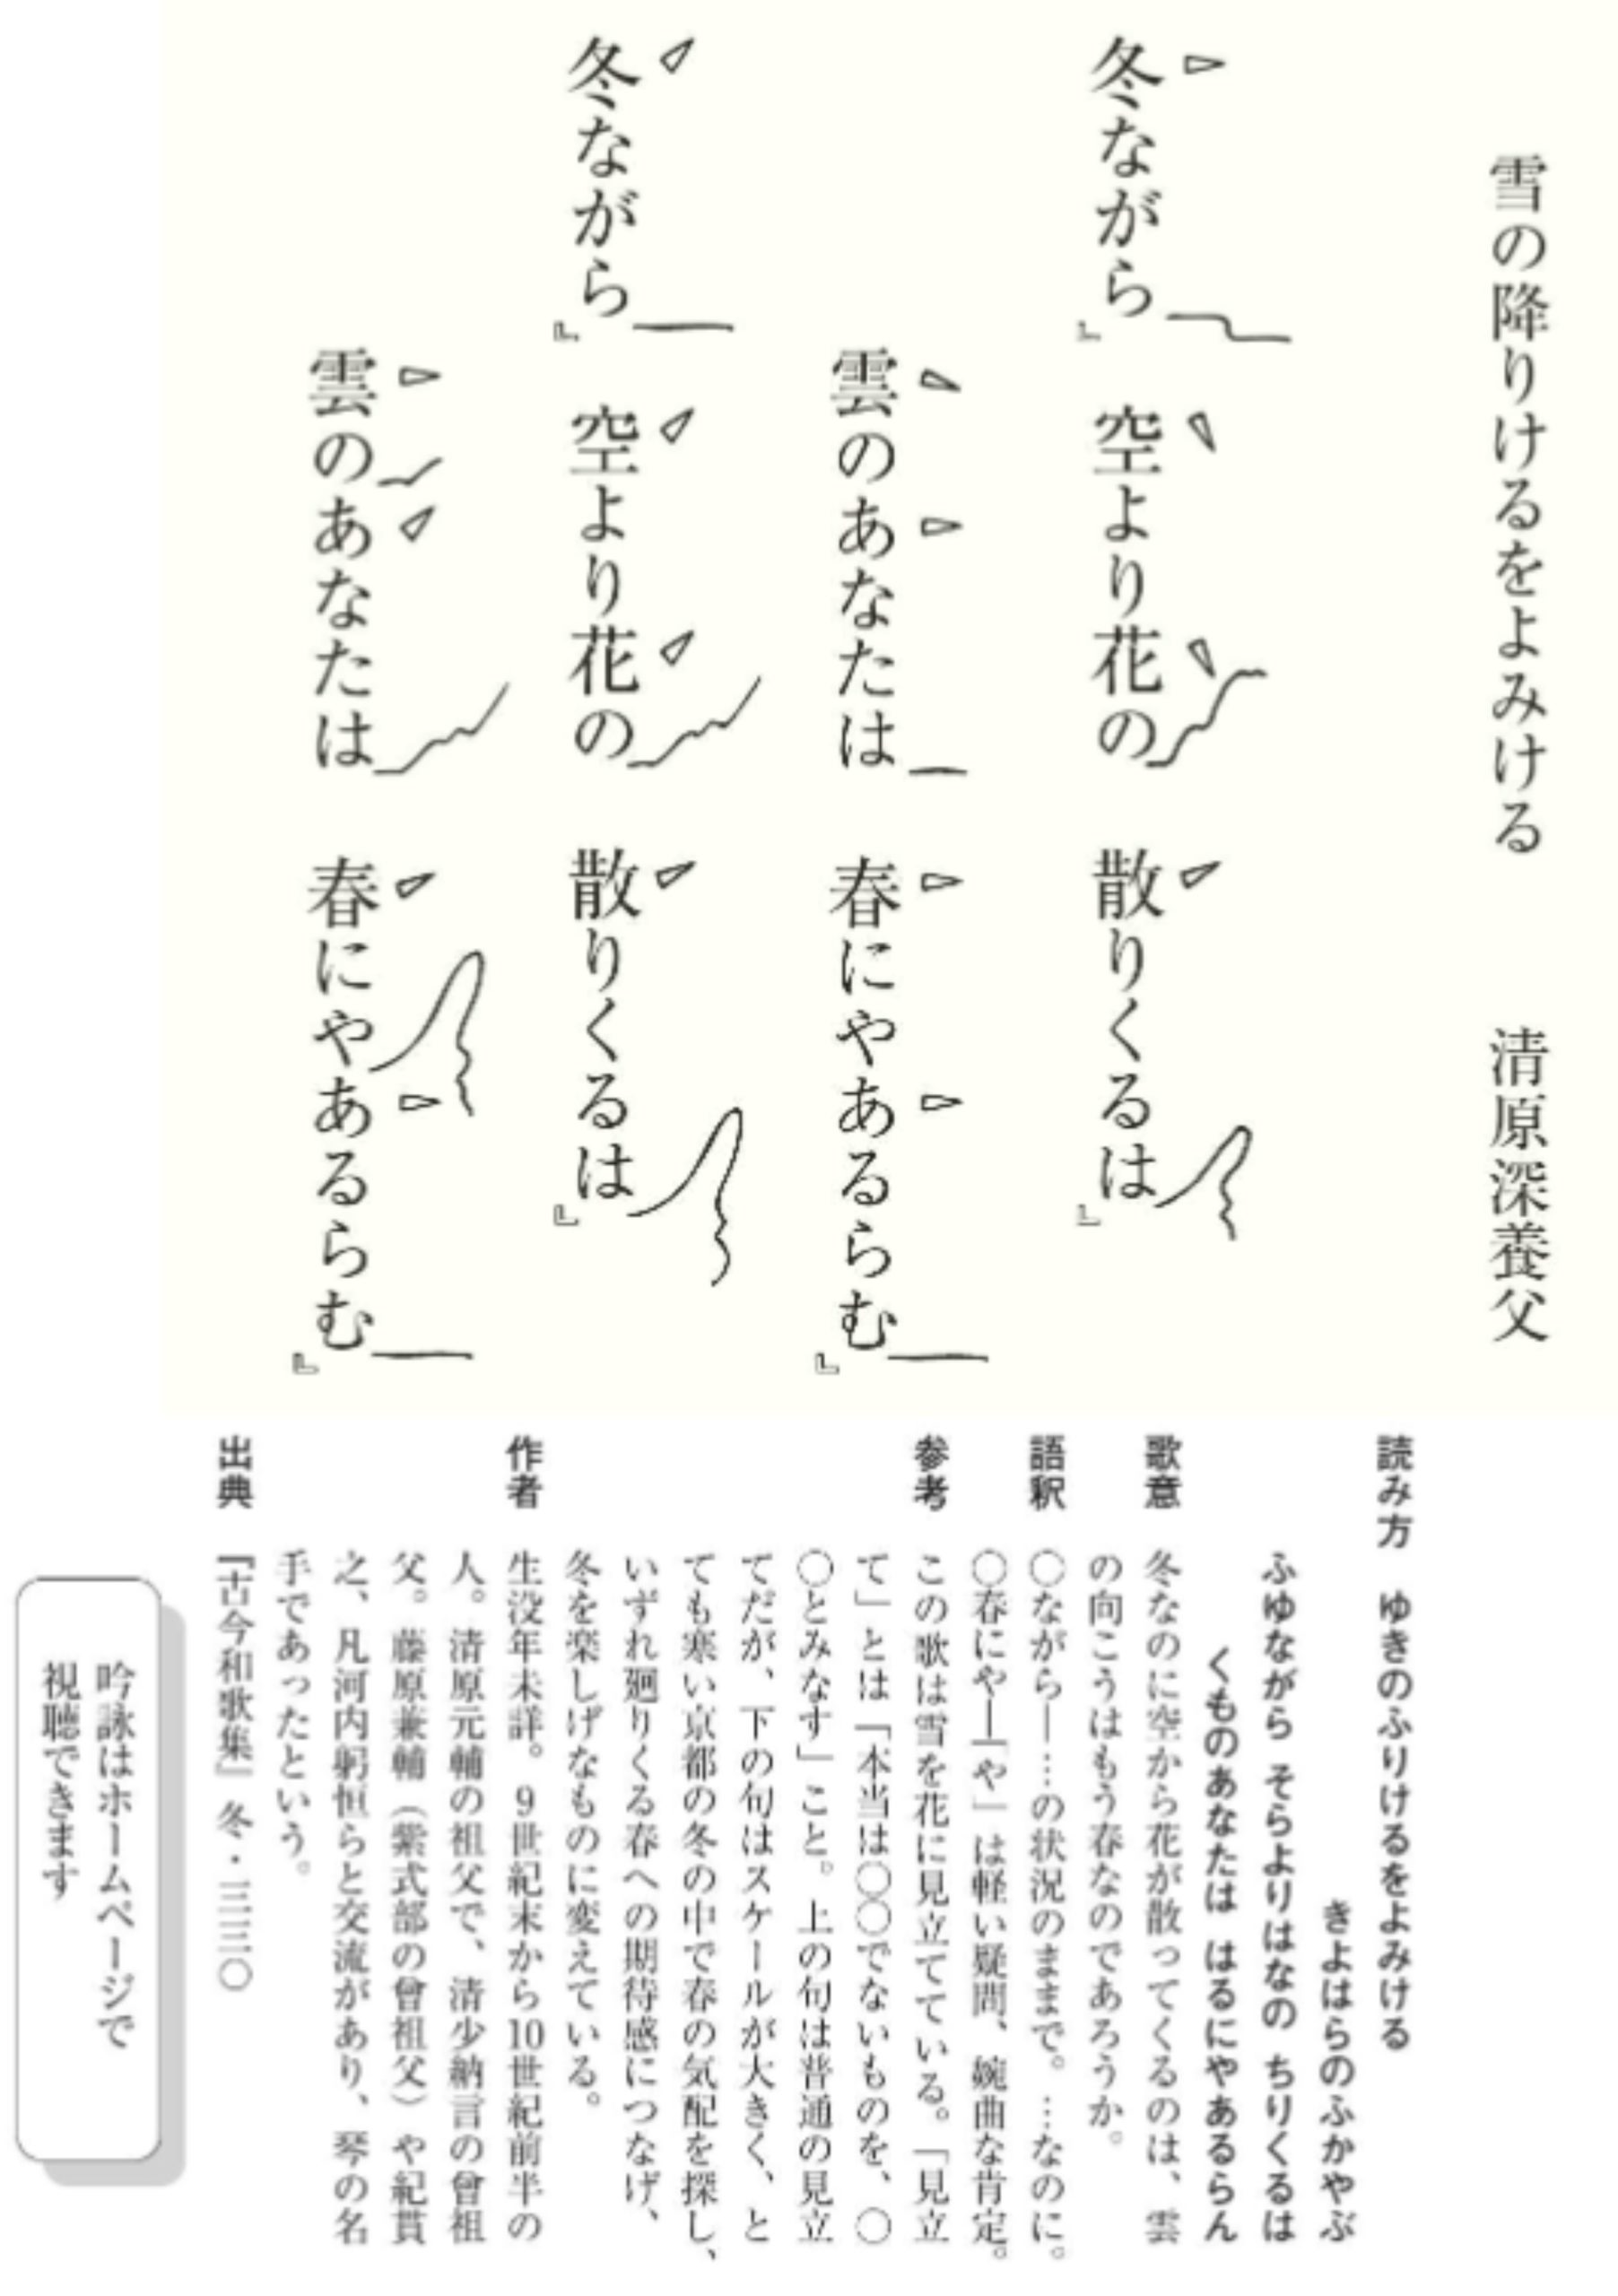 雪の降りけるをよみける　　清原深養父
冬ながら』　空より花の　散りくるは』
雲のあなたは　春にやあるらむ』
冬ながら』　空より花の　散りくるは』
雲のあなたは　春にやあるらむ』
読み方　ゆきのふりけるをよみける
きよはらのふかやぶ
ふゆながら そらよりはなの ちりくるは
くものあなたは はるにやあるらん
歌意　冬なのに空から花が散ってくるのは、雲
の向こうはもう春なのであろうか。
語釈　〇ながら―…の状況のままで。…なのに。
〇春にや―「や」は軽い疑問、婉曲な肯定。
参考　この歌は雪を花に見立てている。「見立
て」とは「本当は〇〇でないものを、〇
〇とみなす」こと。上の句は普通の見立
てだが、下の句はスケールが大きく、と
ても寒い京都の冬の中で春の気配を探し、
いずれ廻りくる春への期待感につなげ、
冬を楽しげなものに変えている。
作者　生没年未詳。9世紀末から10世紀前半の
人。清原元輔の祖父で、清少納言の曾祖
父。藤原兼輔（紫式部の曾祖父）や紀貫
之、凡河内躬恒らと交流があり、琴の名
手であったという。
出典　『古今和歌集』冬・三三〇
吟詠はホームページで
視聴できます